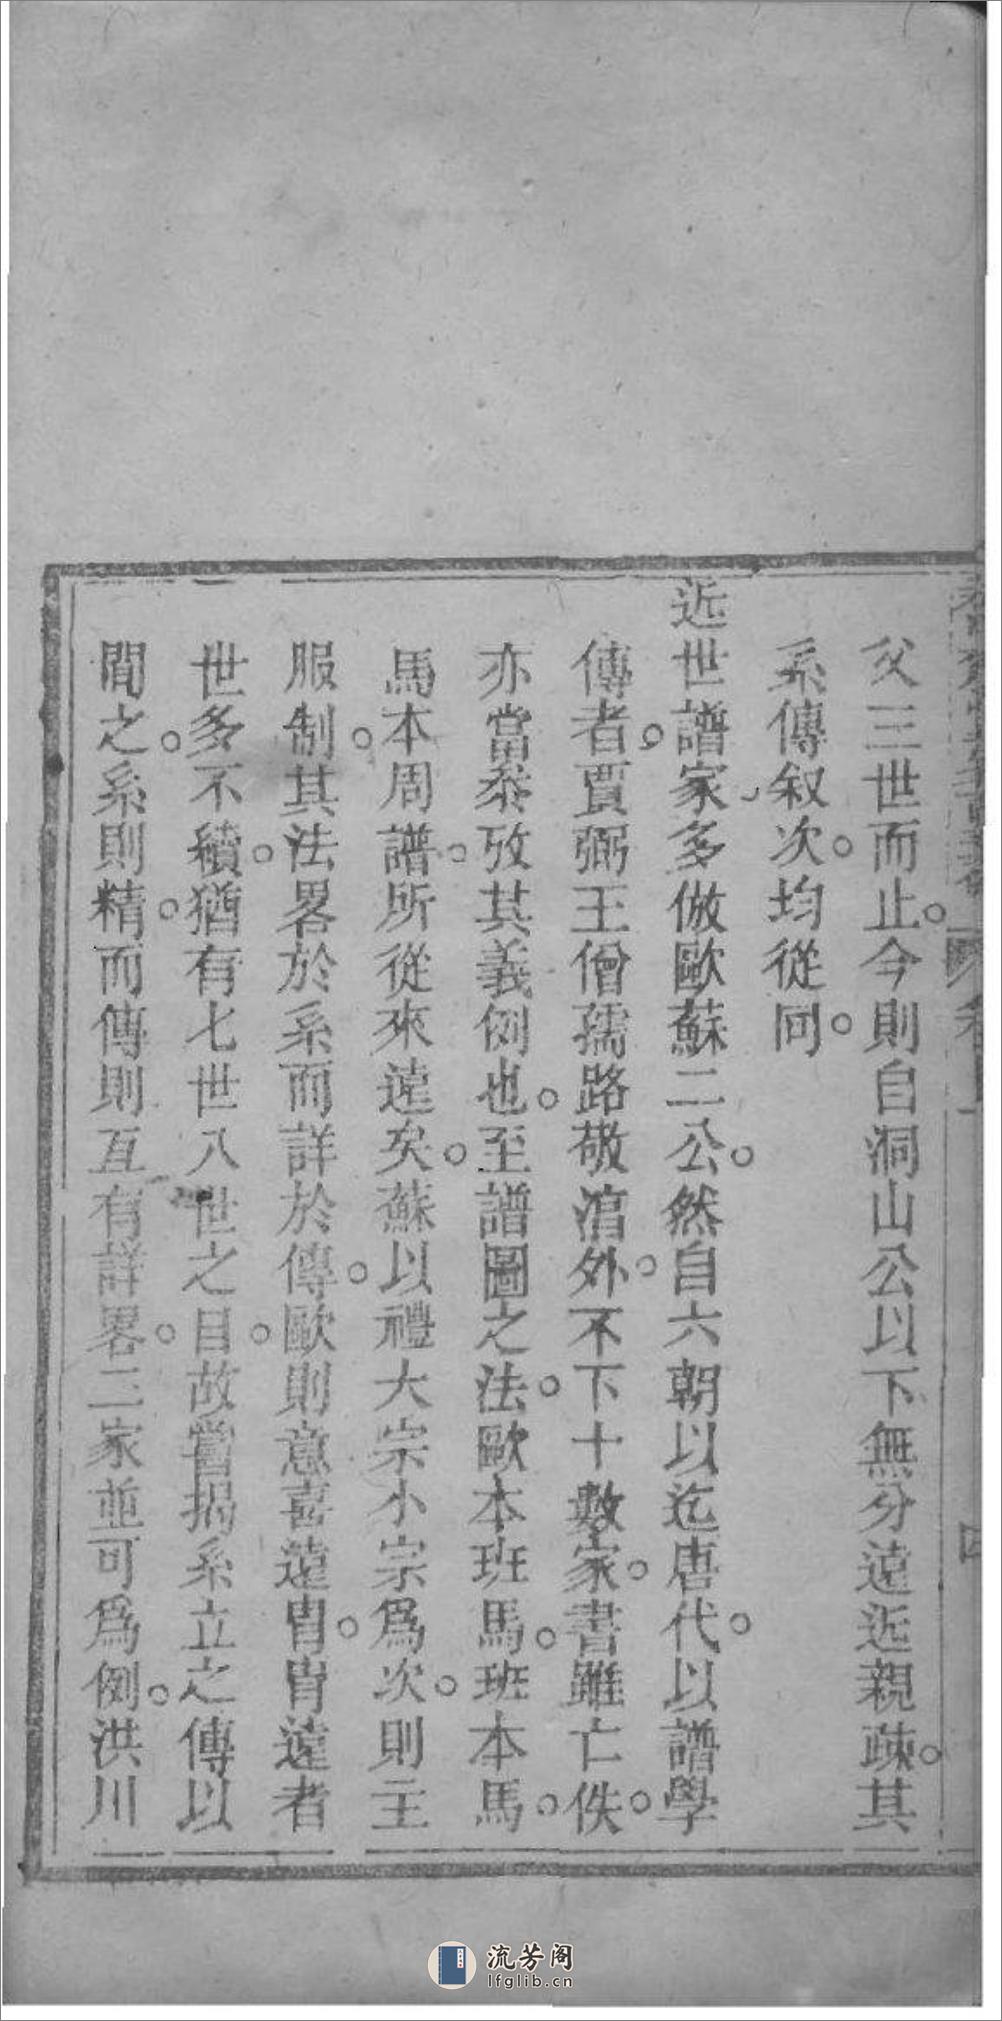 父三世而止今則自洞山公以下無分遠近親疎其
系傳叙次均從同
近世譜家多倣歐蘇二公然自六朝以迄唐代以譜學
傳者賈弼王僧孺路敬淳外不下十數家書雖亡佚
亦當叅攷其義例也至譜圖之法歐本班馬班本馬
馬本周譜所從來遠矣蘇以禮大宗小宗爲次則主
服制其法畧於系而詳於傳歐則意喜遠胄胄遠者
世多不續猶有七世八世之目故嘗揭系立之傳以
間之系則精而傳則互有詳畧二家並可爲例洪川
流芳阁
lfglib.cn